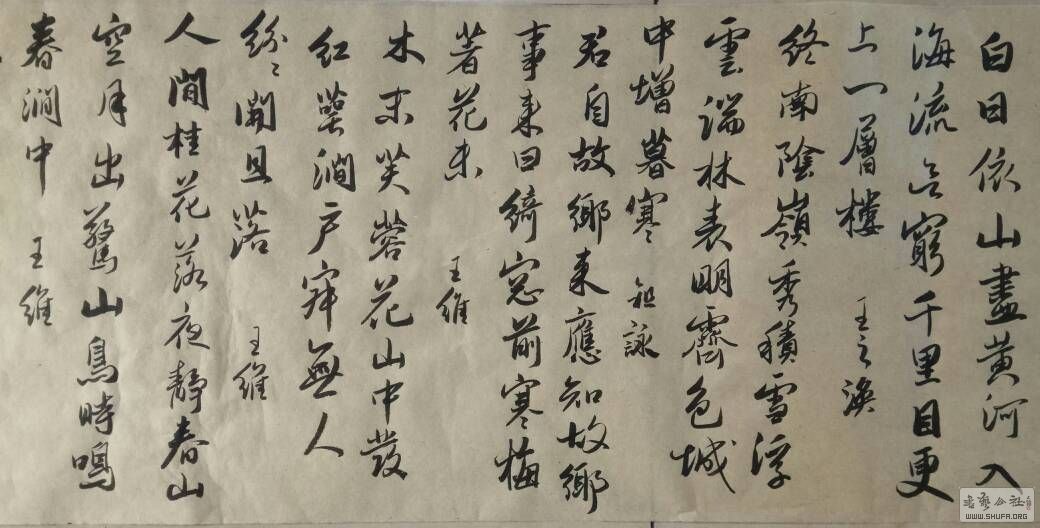 白日依山盡黄河入
海流欲窮千里目更
上一層樓 王之渙
終南陰嶺秀積雪浮
雲端林表明霽色城
中增暮寒 祖詠
君自故鄉來應知故鄉
事來日綺窓前寒梅
著花未 王維
木末芙蓉花山中發
紅萼澗户寂無人
紛〻開且落 王維
人閒桂花落夜靜春山
空月出驚山鳥時鳴
春澗中 王維
書藝公社
WWW.SHUFA.ORG